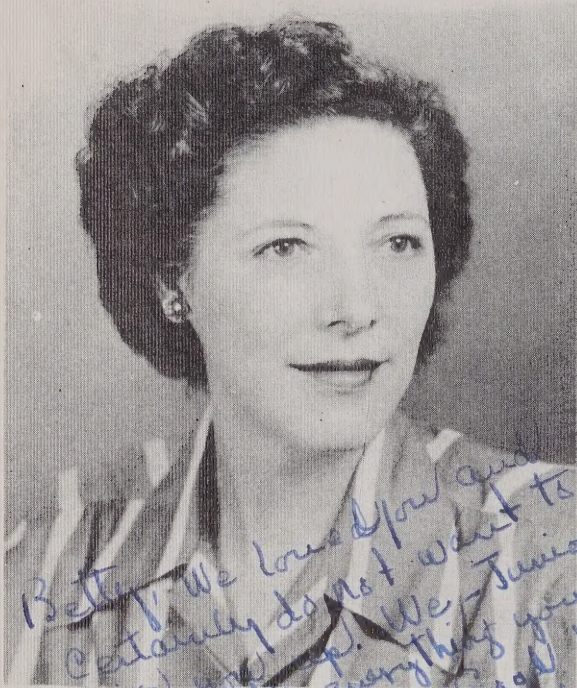 Betty, We loved you and
Certainly do not want to
up. We - Junio
everything you